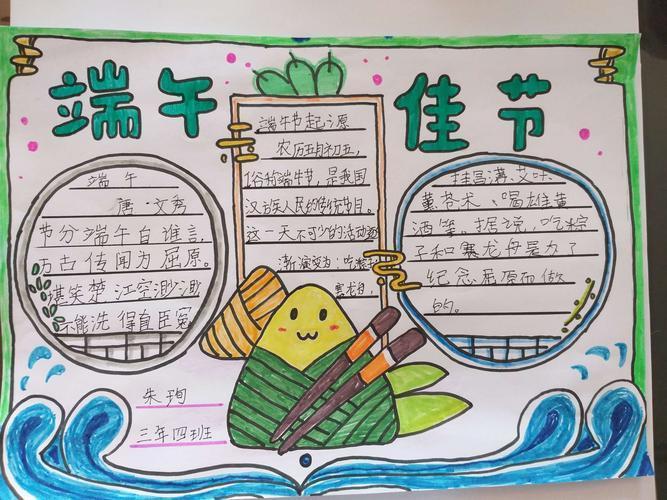 端午佳节
端午
唐·文秀
节分端午自谁言,
万古传闻为屈原。
堪笑楚江空渺渺
不能洗得直臣冤
端午节起源
农历五月初五,
俗称端午节,是我国
汉族人民的传统节日。
这一天不可少的活动逐
渐演变为:吃粽子
赛龙舟,
挂菖蒲、艾叶
薰苍术、喝雄黄
酒等。据说,吃粽
子和赛龙舟是为了
纪念屈原而做
的。
朱珣
三年四班